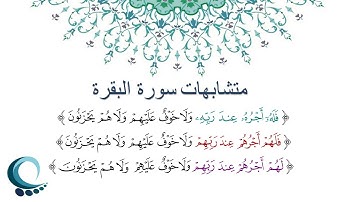 متشابهات سورة البقرة
﴿ فَلَهُۥٓ أَجْرُهُۥ عِندَ رَبِّهِۦ وَلَا خَوْفٌ عَلَيْهِمْ وَلَا هُمْ يَحْزَنُونَ ﴾
﴿ فَلَهُمْ أَجْرُهُمْ عِندَ رَبِّهِمْ وَلَا خَوْفٌ عَلَيْهِمْ وَلَا هُمْ يَحْزَنُونَ ﴾
﴿ لَهُمْ أَجْرُهُمْ عِندَ رَبِّهِمْ وَلَا خَوْفٌ عَلَيْهِمْ وَلَا هُمْ يَحْزَنُونَ ﴾